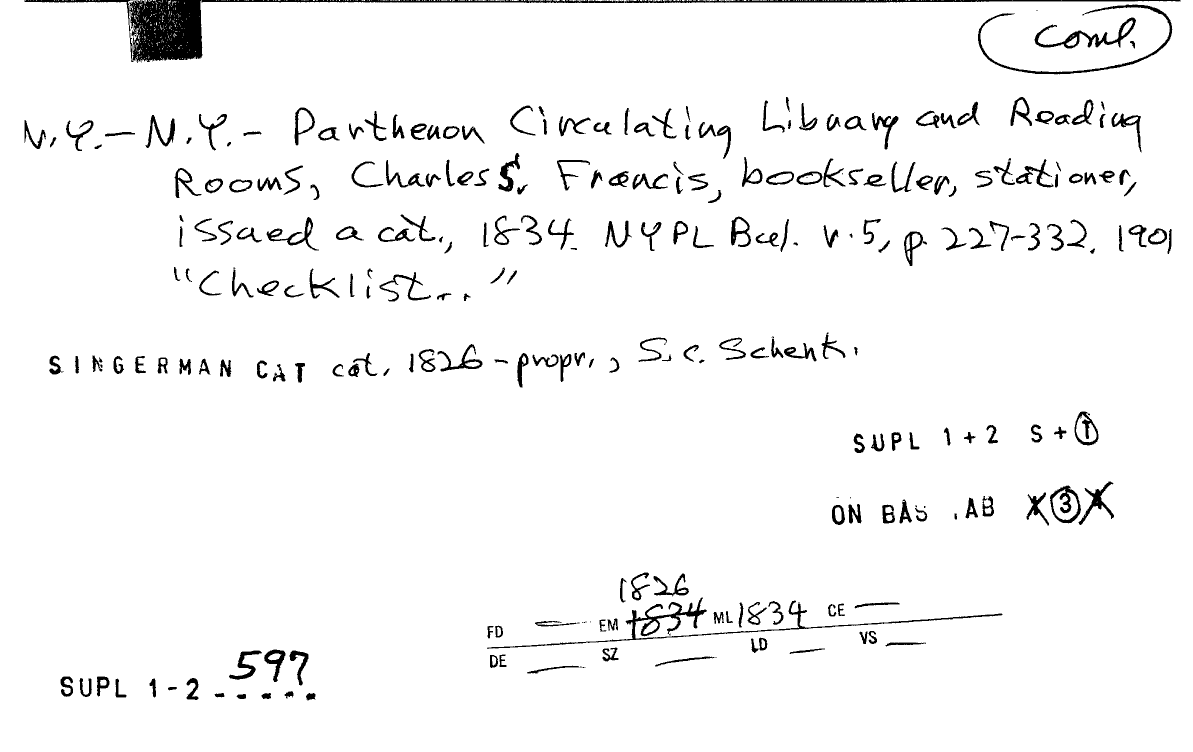 Coml.
N.Y.-N.Y.- Parthenon Circulating Library and Reading
Rooms, Charles S. Francis, bookseller, stationer,
issued a cat., 1834. NYPL Bul. v.5, p. 227-332. 1901
"Checklist..."
SINGERMAN CAT cat. 1826-propr., S.C. Schenk.
SUPL 1+2 S+T
ON BAS . AB X 3 X
1826
FD — EM 1834 ML 1834 CE —
DE — SZ — LD — VS —
SUPL 1-2 597